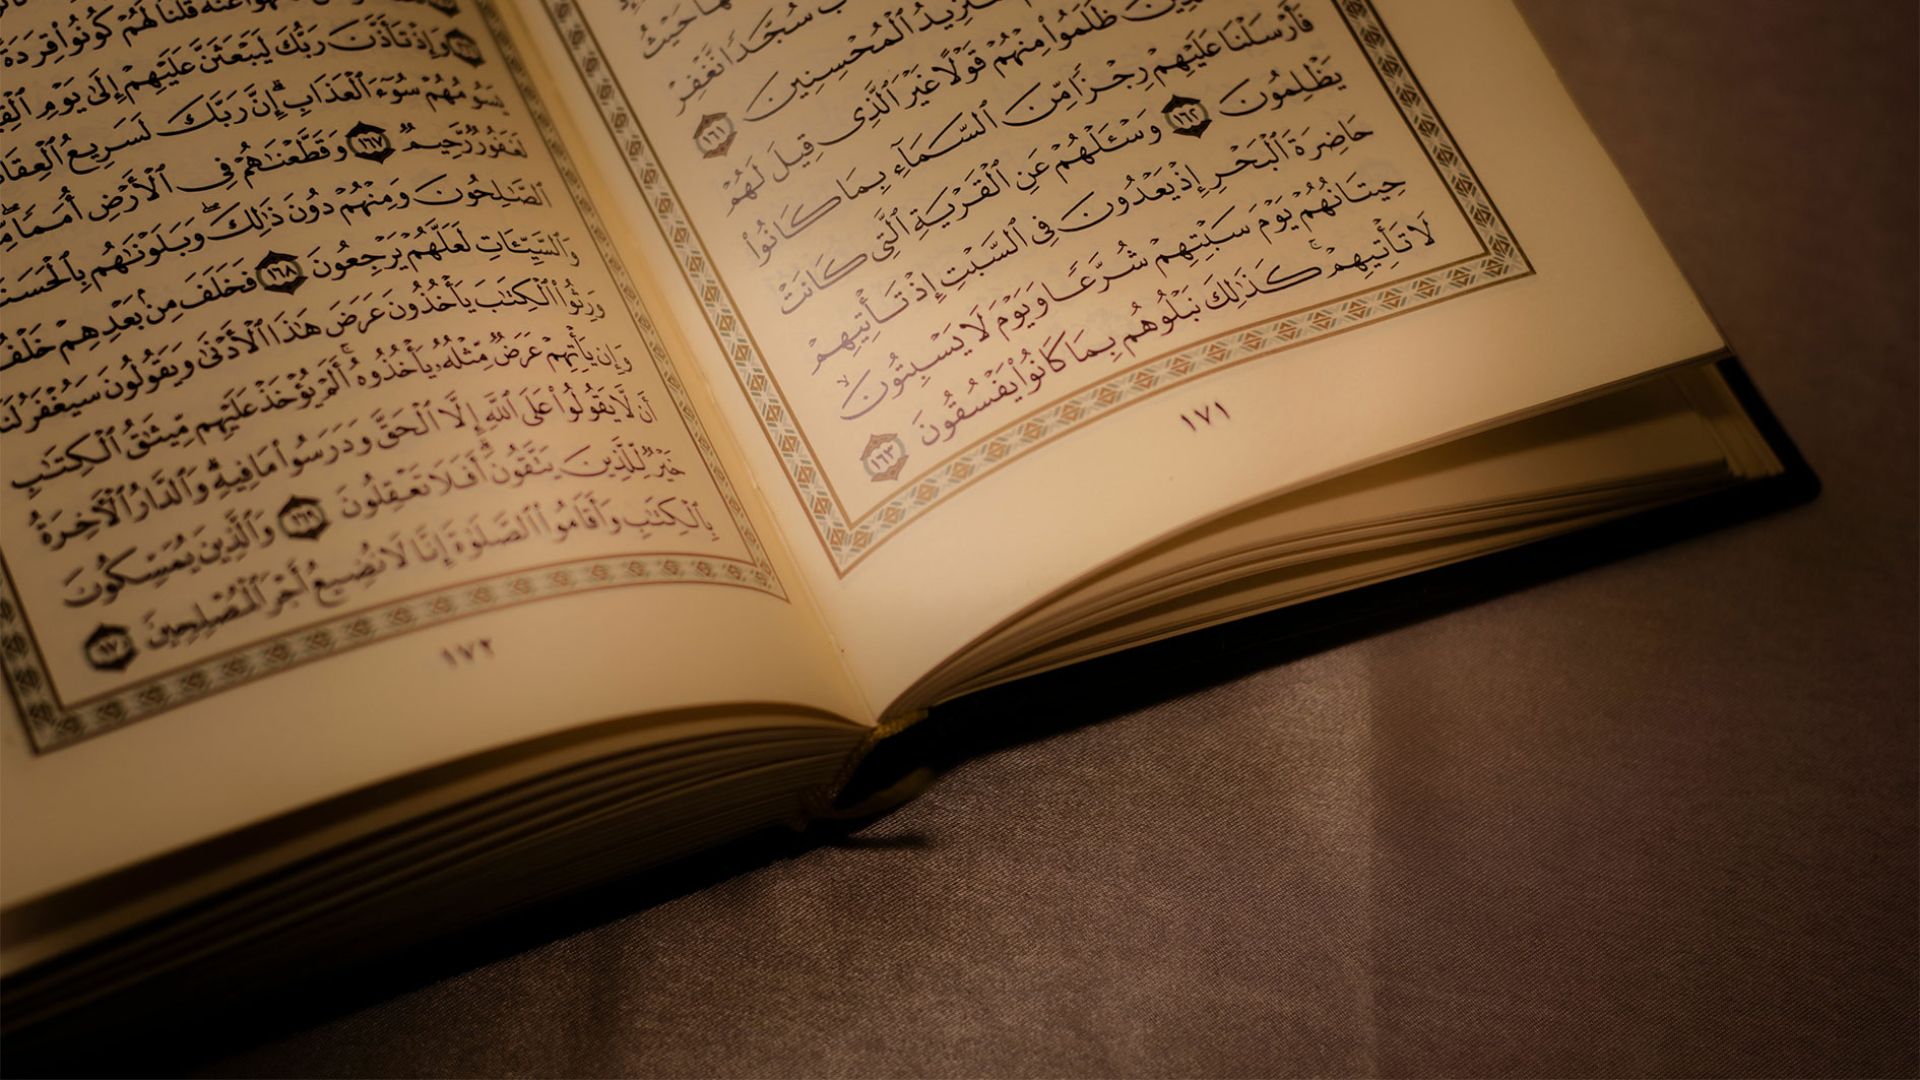 حَيْثُ
سُجَّدًا نَّغْفِرْ
ٱلْمُحْسِنِينَ ١٦١
ظَلَمُوا۟ مِنْهُمْ قَوْلًا غَيْرَ ٱلَّذِى قِيلَ لَهُمْ
فَأَرْسَلْنَا عَلَيْهِمْ رِجْزًا مِّنَ ٱلسَّمَآءِ بِمَا كَانُوا۟
يَظْلِمُونَ ١٦٢ وَسْـَٔلْهُمْ عَنِ ٱلْقَرْيَةِ ٱلَّتِى كَانَتْ
حَاضِرَةَ ٱلْبَحْرِ إِذْ يَعْدُونَ فِى ٱلسَّبْتِ إِذْ تَأْتِيهِمْ
حِيتَانُهُمْ يَوْمَ سَبْتِهِمْ شُرَّعًا وَيَوْمَ لَا يَسْبِتُونَ ۙ
لَا تَأْتِيهِمْ ۚ كَذَٰلِكَ نَبْلُوهُم بِمَا كَانُوا۟ يَفْسُقُونَ ١٦٣
١٧١
عَنْهُ قُلْنَا لَهُمْ كُونُوا۟ قِرَدَةً
وَإِذْ تَأَذَّنَ رَبُّكَ لَيَبْعَثَنَّ عَلَيْهِمْ إِلَىٰ يَوْمِ
يَسُومُهُمْ سُوٓءَ ٱلْعَذَابِ ۗ إِنَّ رَبَّكَ لَسَرِيعُ
لَغَفُورٌ رَّحِيمٌ ١٦٧ وَقَطَّعْنَٰهُمْ فِى ٱلْأَرْضِ أُمَمًا ۖ
ٱلصَّٰلِحُونَ وَمِنْهُمْ دُونَ ذَٰلِكَ ۖ وَبَلَوْنَٰهُم
وَٱلسَّيِّـَٔاتِ لَعَلَّهُمْ يَرْجِعُونَ ١٦٨ فَخَلَفَ مِنۢ بَعْدِهِمْ
وَرِثُوا۟ ٱلْكِتَٰبَ يَأْخُذُونَ عَرَضَ هَٰذَا ٱلْأَدْنَىٰ وَيَقُولُونَ سَيُغْفَرُ لَنَا
وَإِن يَأْتِهِمْ عَرَضٌ مِّثْلُهُۥ يَأْخُذُوهُ ۚ أَلَمْ يُؤْخَذْ عَلَيْهِم مِّيثَٰقُ ٱلْكِتَٰبِ
أَن لَّا يَقُولُوا۟ عَلَى ٱللَّهِ إِلَّا ٱلْحَقَّ وَدَرَسُوا۟ مَا فِيهِ ۗ وَٱلدَّارُ ٱلْـَٔاخِرَةُ
خَيْرٌ لِّلَّذِينَ يَتَّقُونَ ۗ أَفَلَا تَعْقِلُونَ ١٦٩ وَٱلَّذِينَ يُمَسِّكُونَ
بِٱلْكِتَٰبِ وَأَقَامُوا۟ ٱلصَّلَوٰةَ إِنَّا لَا نُضِيعُ أَجْرَ ٱلْمُصْلِحِينَ ١٧٠
١٧٢